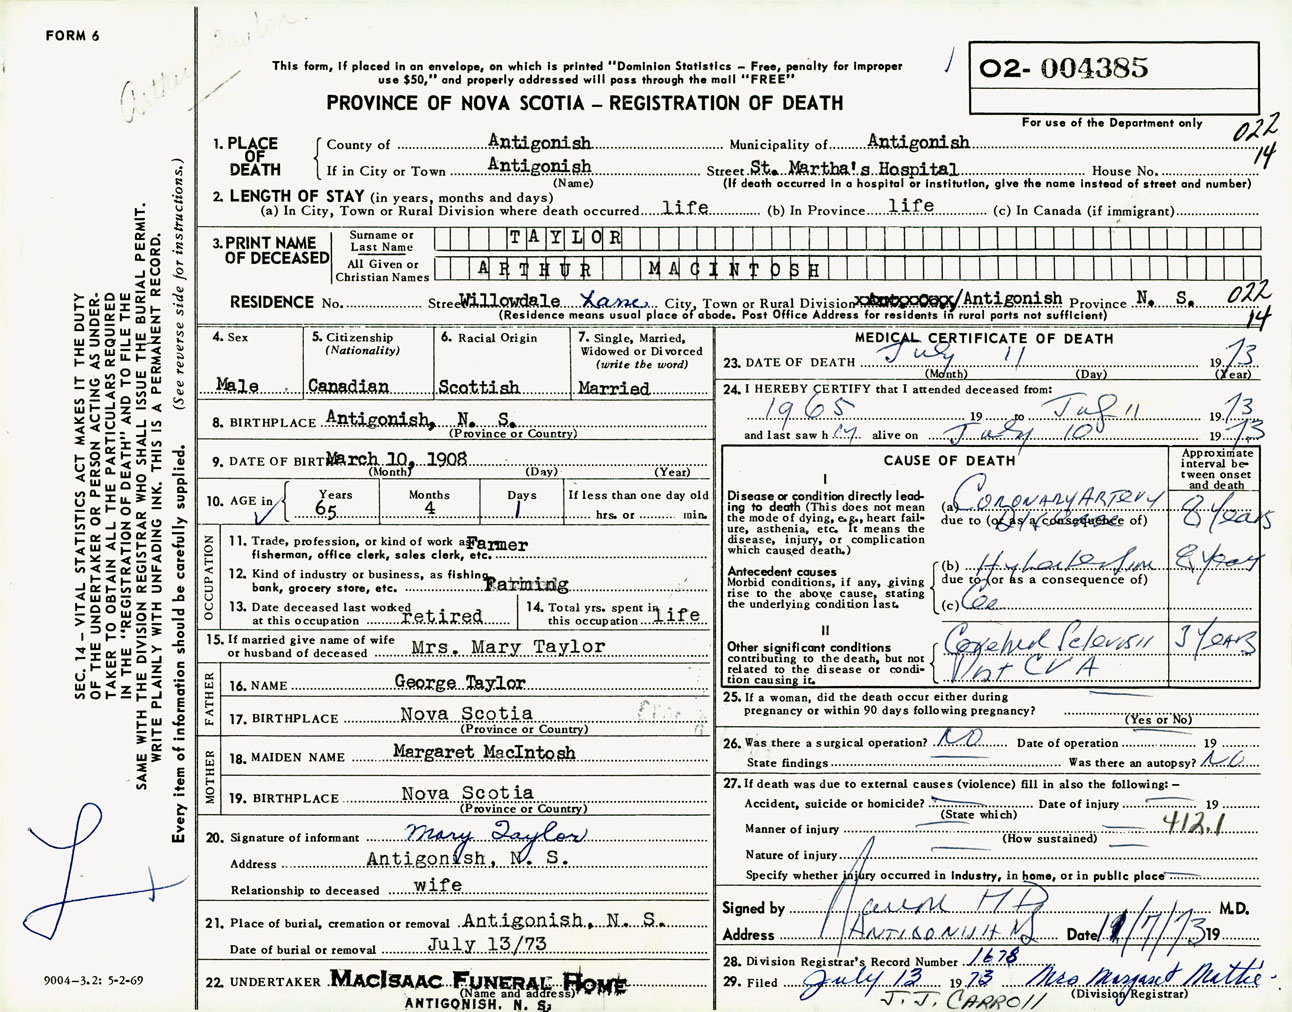 FORM 6
Arthur Taylor
This form, if placed in an envelope, on which is printed "Dominion Statistics – Free, penalty for improper
use $50," and properly addressed will pass through the mail "FREE"
PROVINCE OF NOVA SCOTIA – REGISTRATION OF DEATH
02- 004385
For use of the Department only
022
14
1. PLACE OF DEATH
County of Antigonish Municipality of Antigonish
If in City or Town Antigonish Street St. Martha's Hospital House No.
(Name) (If death occurred in a hospital or institution, give the name instead of street and number)
2. LENGTH OF STAY (in years, months and days)
(a) In City, Town or Rural Division where death occurred life (b) In Province life (c) In Canada (if immigrant)
3. PRINT NAME OF DECEASED
Surname or Last Name TAYLOR
All Given or Christian Names ARTHUR MACINTOSH
RESIDENCE No. Street Willowdale Lane City, Town or Rural Division /Antigonish Province N. S. 022
(Residence means usual place of abode. Post Office Address for residents in rural parts not sufficient) 14
4. Sex
Male
5. Citizenship
(Nationality)
Canadian
6. Racial Origin
Scottish
7. Single, Married,
Widowed or Divorced
(write the word)
Married
8. BIRTHPLACE Antigonish, N. S.
(Province or Country)
9. DATE OF BIRTH March 10, 1908
(Month) (Day) (Year)
10. AGE in Years 65 Months 4 Days 1 If less than one day old
hrs. or min.
OCCUPATION
11. Trade, profession, or kind of work as Farmer
fisherman, office clerk, sales clerk, etc.
12. Kind of industry or business, as fishing,
bank, grocery store, etc. Farming
13. Date deceased last worked
at this occupation retired
14. Total yrs. spent in
this occupation life
15. If married give name of wife
or husband of deceased Mrs. Mary Taylor
FATHER
16. NAME George Taylor
17. BIRTHPLACE Nova Scotia
(Province or Country)
MOTHER
18. MAIDEN NAME Margaret MacIntosh
19. BIRTHPLACE Nova Scotia
(Province or Country)
20. Signature of informant Mary Taylor
Address Antigonish, N. S.
Relationship to deceased wife
21. Place of burial, cremation or removal Antigonish, N. S.
Date of burial or removal July 13/73
22. UNDERTAKER MACISAAC FUNERAL HOME
(Name and address)
ANTIGONISH, N. S.
MEDICAL CERTIFICATE OF DEATH
23. DATE OF DEATH July 11 1973
(Month) (Day) (Year)
24. I HEREBY CERTIFY that I attended deceased from:
1965 19 to Jul 11 1973
and last saw h im alive on July 10 1973
CAUSE OF DEATH
Approximate interval between onset and death
I
Disease or condition directly leading to death (This does not
mean the mode of dying, e.g., heart failure, asthenia, etc. It means the
disease, injury, or complication
which caused death.)
(a) CORONARY ARTERY DISEASE 8 Years
due to (or as a consequence of)
Antecedent causes
Morbid conditions, if any, giving
rise to the above cause, stating
the underlying condition last.
(b) Hypertension 8 Years
due to (or as a consequence of)
(c)
II
Other significant conditions
contributing to the death, but not
related to the disease or condition causing it.
Cerebral Sclerosis 3 Years
Post CVA
25. If a woman, did the death occur either during
pregnancy or within 90 days following pregnancy?
(Yes or No)
26. Was there a surgical operation? NO Date of operation 19
State findings Was there an autopsy? NO
27. If death was due to external causes (violence) fill in also the following: –
Accident, suicide or homicide? Date of injury 19
(State which)
412.1
Manner of injury
(How sustained)
Nature of injury
Specify whether injury occurred in industry, in home, or in public place
Signed by MD M.D.
Address ANTIGONISH NS Date 11/7/73 19
28. Division Registrar's Record Number 1678
29. Filed July 13 1973 Mrs Margaret Mattie
(Division Registrar)
J. J. CARROLL
SEC. 14 – VITAL STATISTICS ACT MAKES IT THE DUTY
OF THE UNDERTAKER OR PERSON ACTING AS UNDERTAKER
TO OBTAIN ALL THE PARTICULARS REQUIRED
IN THE "REGISTRATION OF DEATH" AND TO FILE THE
SAME WITH THE DIVISION REGISTRAR WHO SHALL ISSUE THE BURIAL PERMIT.
WRITE PLAINLY WITH UNFADING INK. THIS IS A PERMANENT RECORD.
Every item of information should be carefully supplied. (See reverse side for instructions.)
9004-3.2: 5-2-69